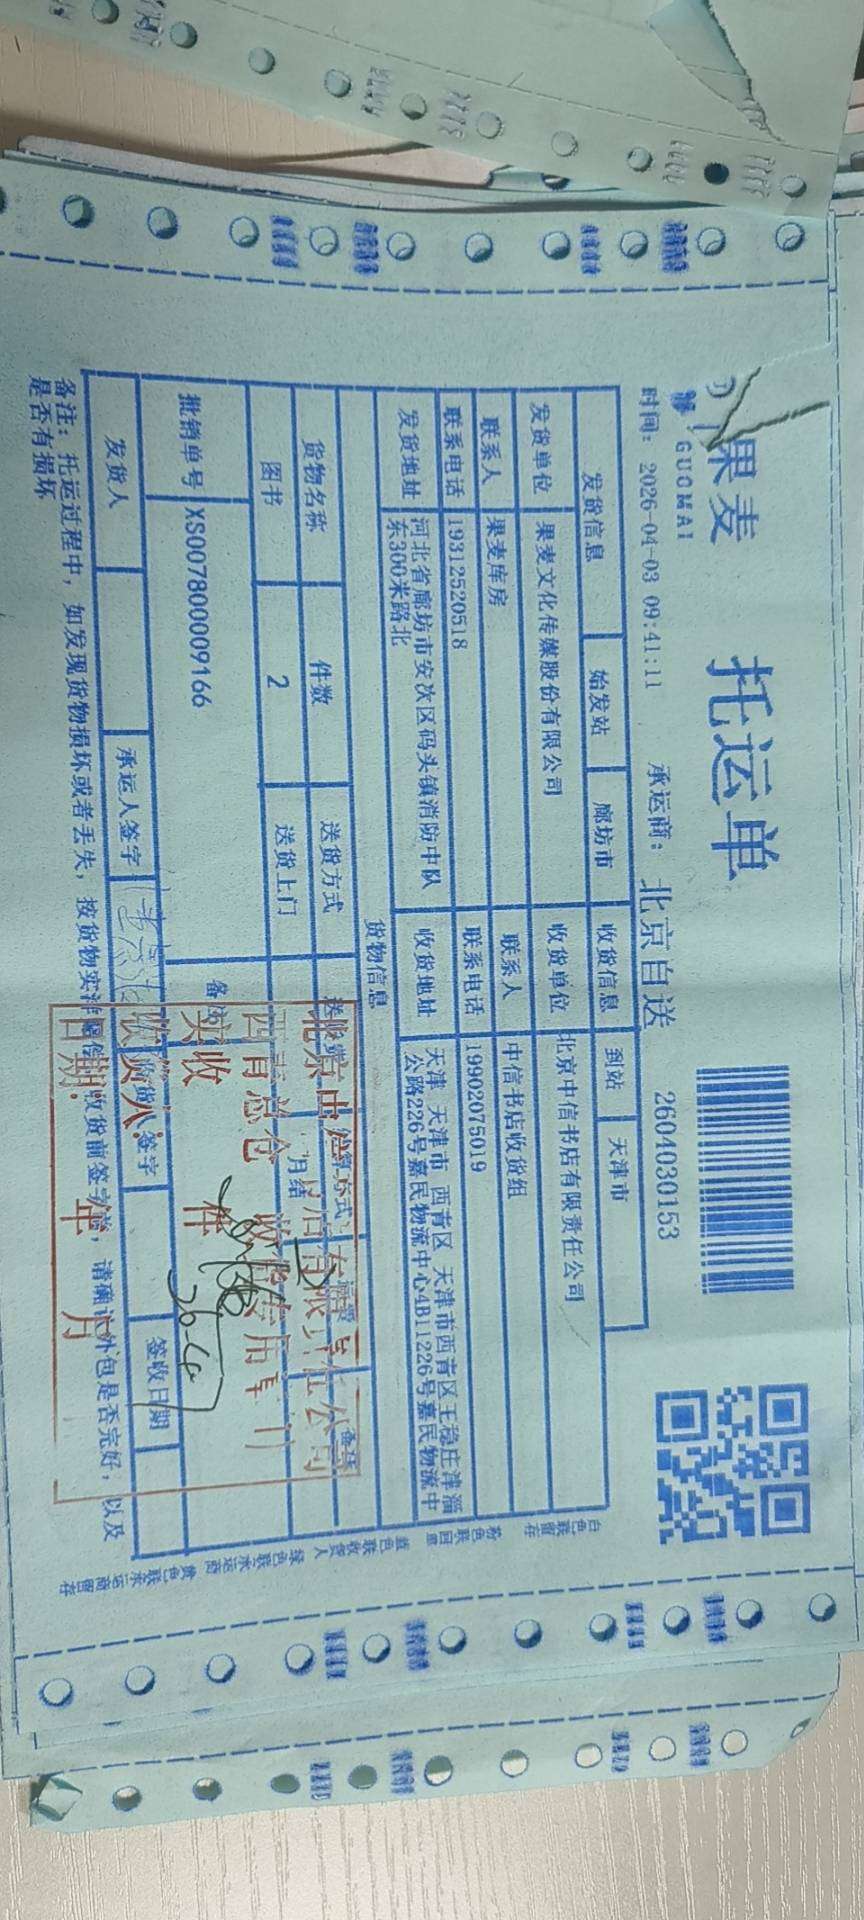 果麦
GUOMAI
托运单
2604030153
时间: 2026-04-03 09:41:11 承运商: 北京自送
发货信息 始发站 廊坊市 收货信息 到站 天津市
发货单位 果麦文化传媒股份有限公司 收货单位 北京中信书店有限责任公司
联系人 果麦库房 联系人 中信书店收货组
联系电话 19312520518 联系电话 19902075019
发货地址 河北省廊坊市安次区码头镇消防中队东300米路北 收货地址 天津 天津市 西青区 天津市西青区王稳庄津淄公路226号嘉民物流中心4B11226号嘉民物流中
货物信息
货物名称 件数 送货方式 结算方式 备注
图书 2 送货上门 月结
批销单号 XS007800009166
发货人 承运人签字 收货人签字 签收日期
备注: 托运过程中, 如发现货物损坏或者丢失, 按货物实洋赔偿 收货前签字前, 请确认外包是否完好, 以及
是否有损坏
北京中信书店有限责任公司
西青总仓 收货专用章
实收 件
收货人:
日期: 年 月
白色联留存
粉色联回单
蓝色联收货人
绿色联承运商
黄色联承运商留存